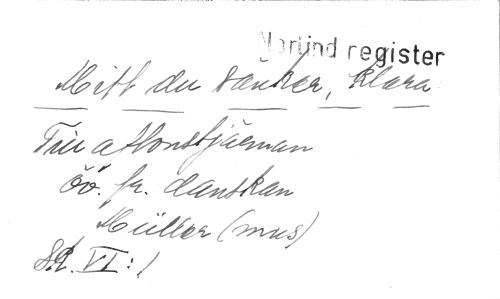 Norlind register
Mitt du tänker, Klara
Till aftonstjärnan
öv. fr. danskan
Müller (mus)
Sk. VI:1